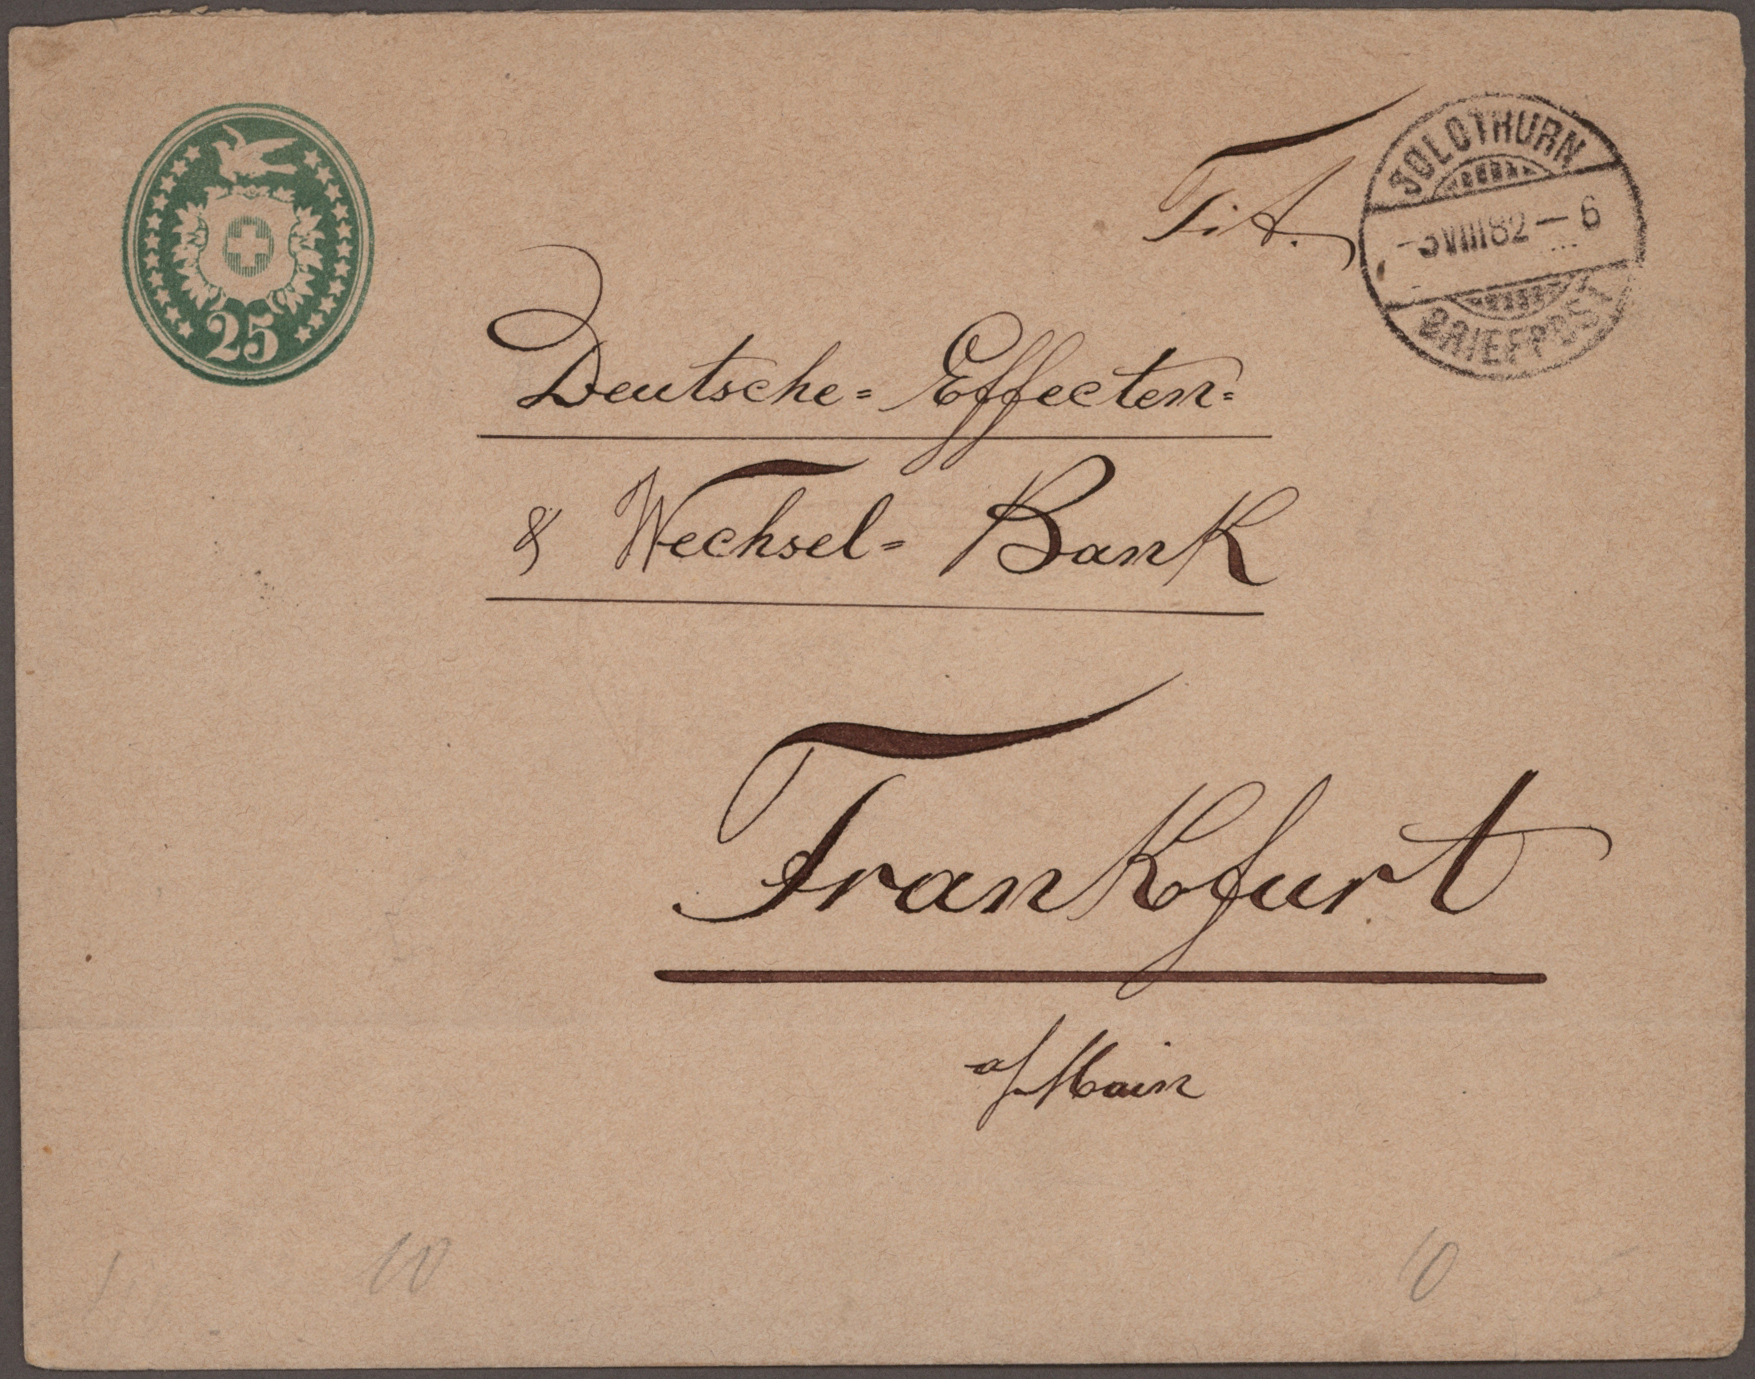 25
Tit.
SOLOTHURN
-3 VIII 82 - 6
BRIEFPOST
Deutsche= Effecten=
& Wechsel= Bank
Frankfurt
a/Main
10
10